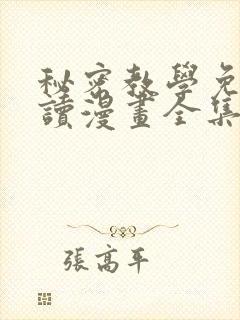 秘密教學免
讀漫畫全集
張高平